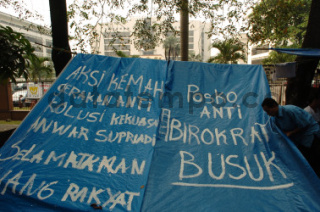 AKSI KEMAH
GERAKAN ANTI
KOLUSI KEKUASAAN
ANWAR SUPRIADI
SELAMATKAN
UANG RAKYAT
POSKO
ANTI
BIROKRAT
BUSUK